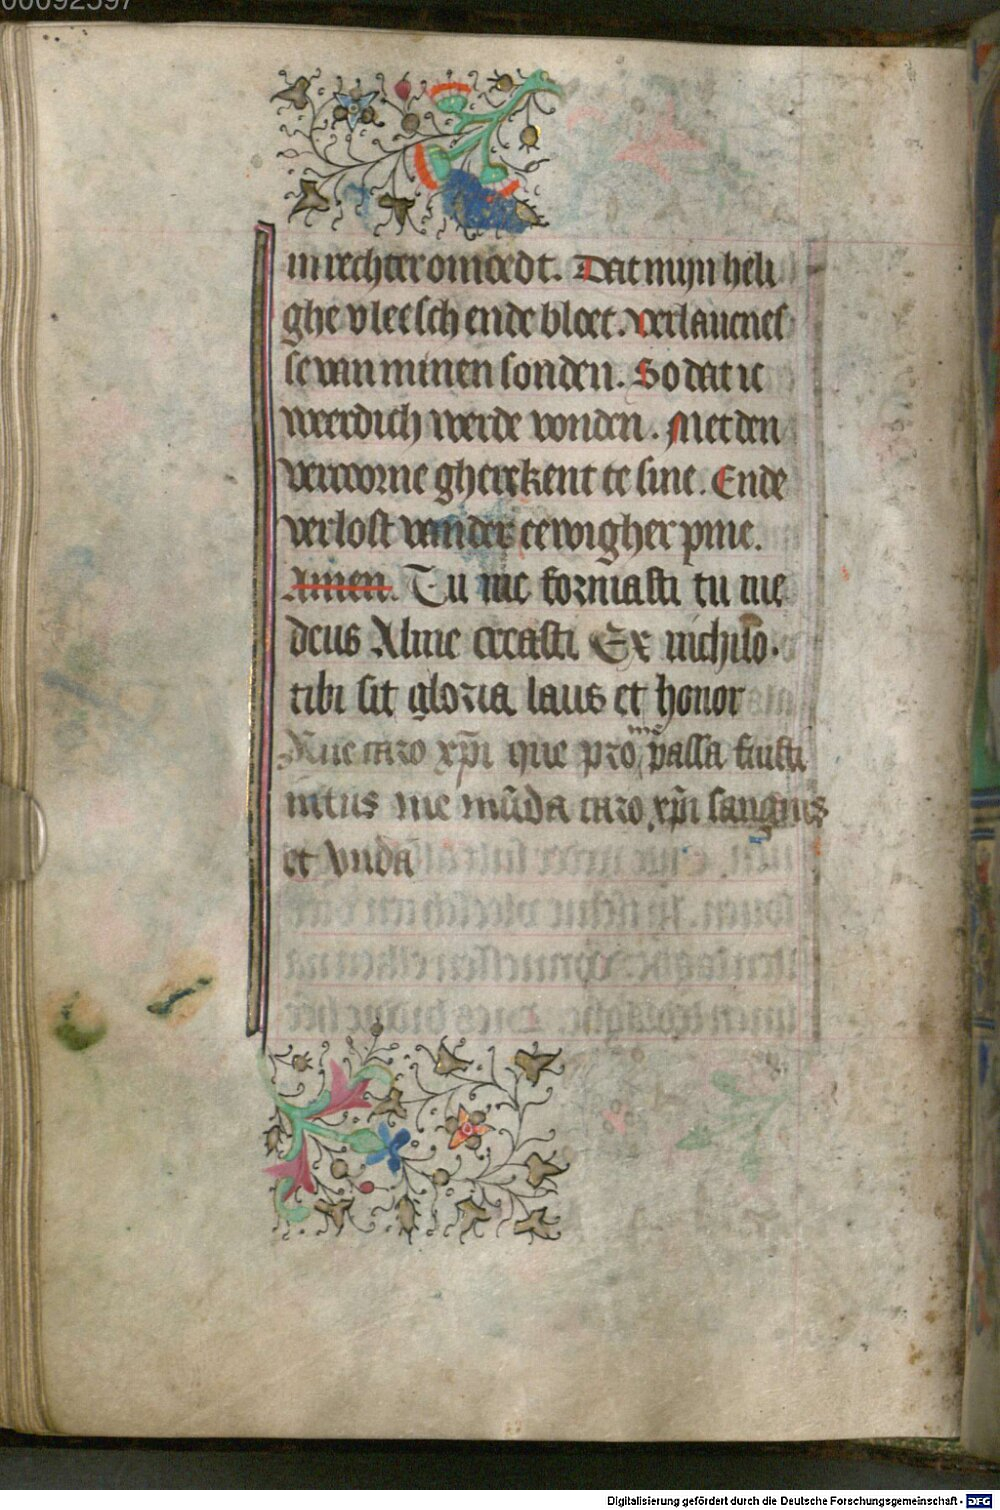 00092597
in rechter omoedt. Dat mijn heli
ghe vleesch ende bloet. verlaucnes
se van minen sonden. So dat ic
weerdich werde vonden. Met den
vercorne gherekent te sine. Ende
verlost vander eewigher pine.
Amen. Tu me formasti tu me
deus Alme creasti Ex nichilo.
tibi sit gloria laus et honor
Aue caro xp̄i que pro me passa fuisti
intus me mūda caro xp̄i sanguis
et vnda
Digitalisierung gefördert durch die Deutsche Forschungsgemeinschaft - DFG